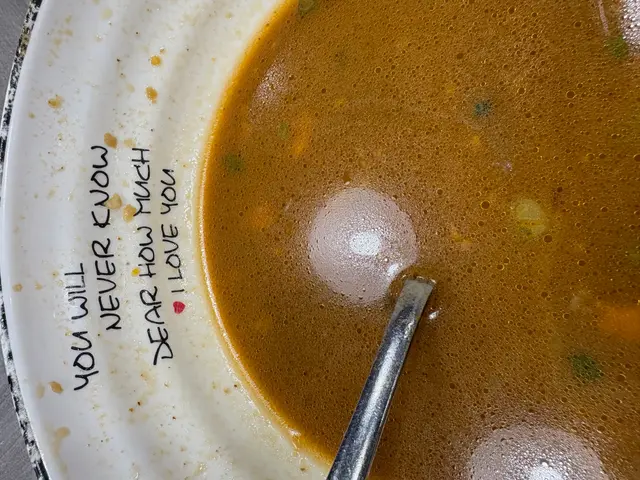 YOU WILL
NEVER KNOW
DEAR HOW MUCH
I LOVE YOU